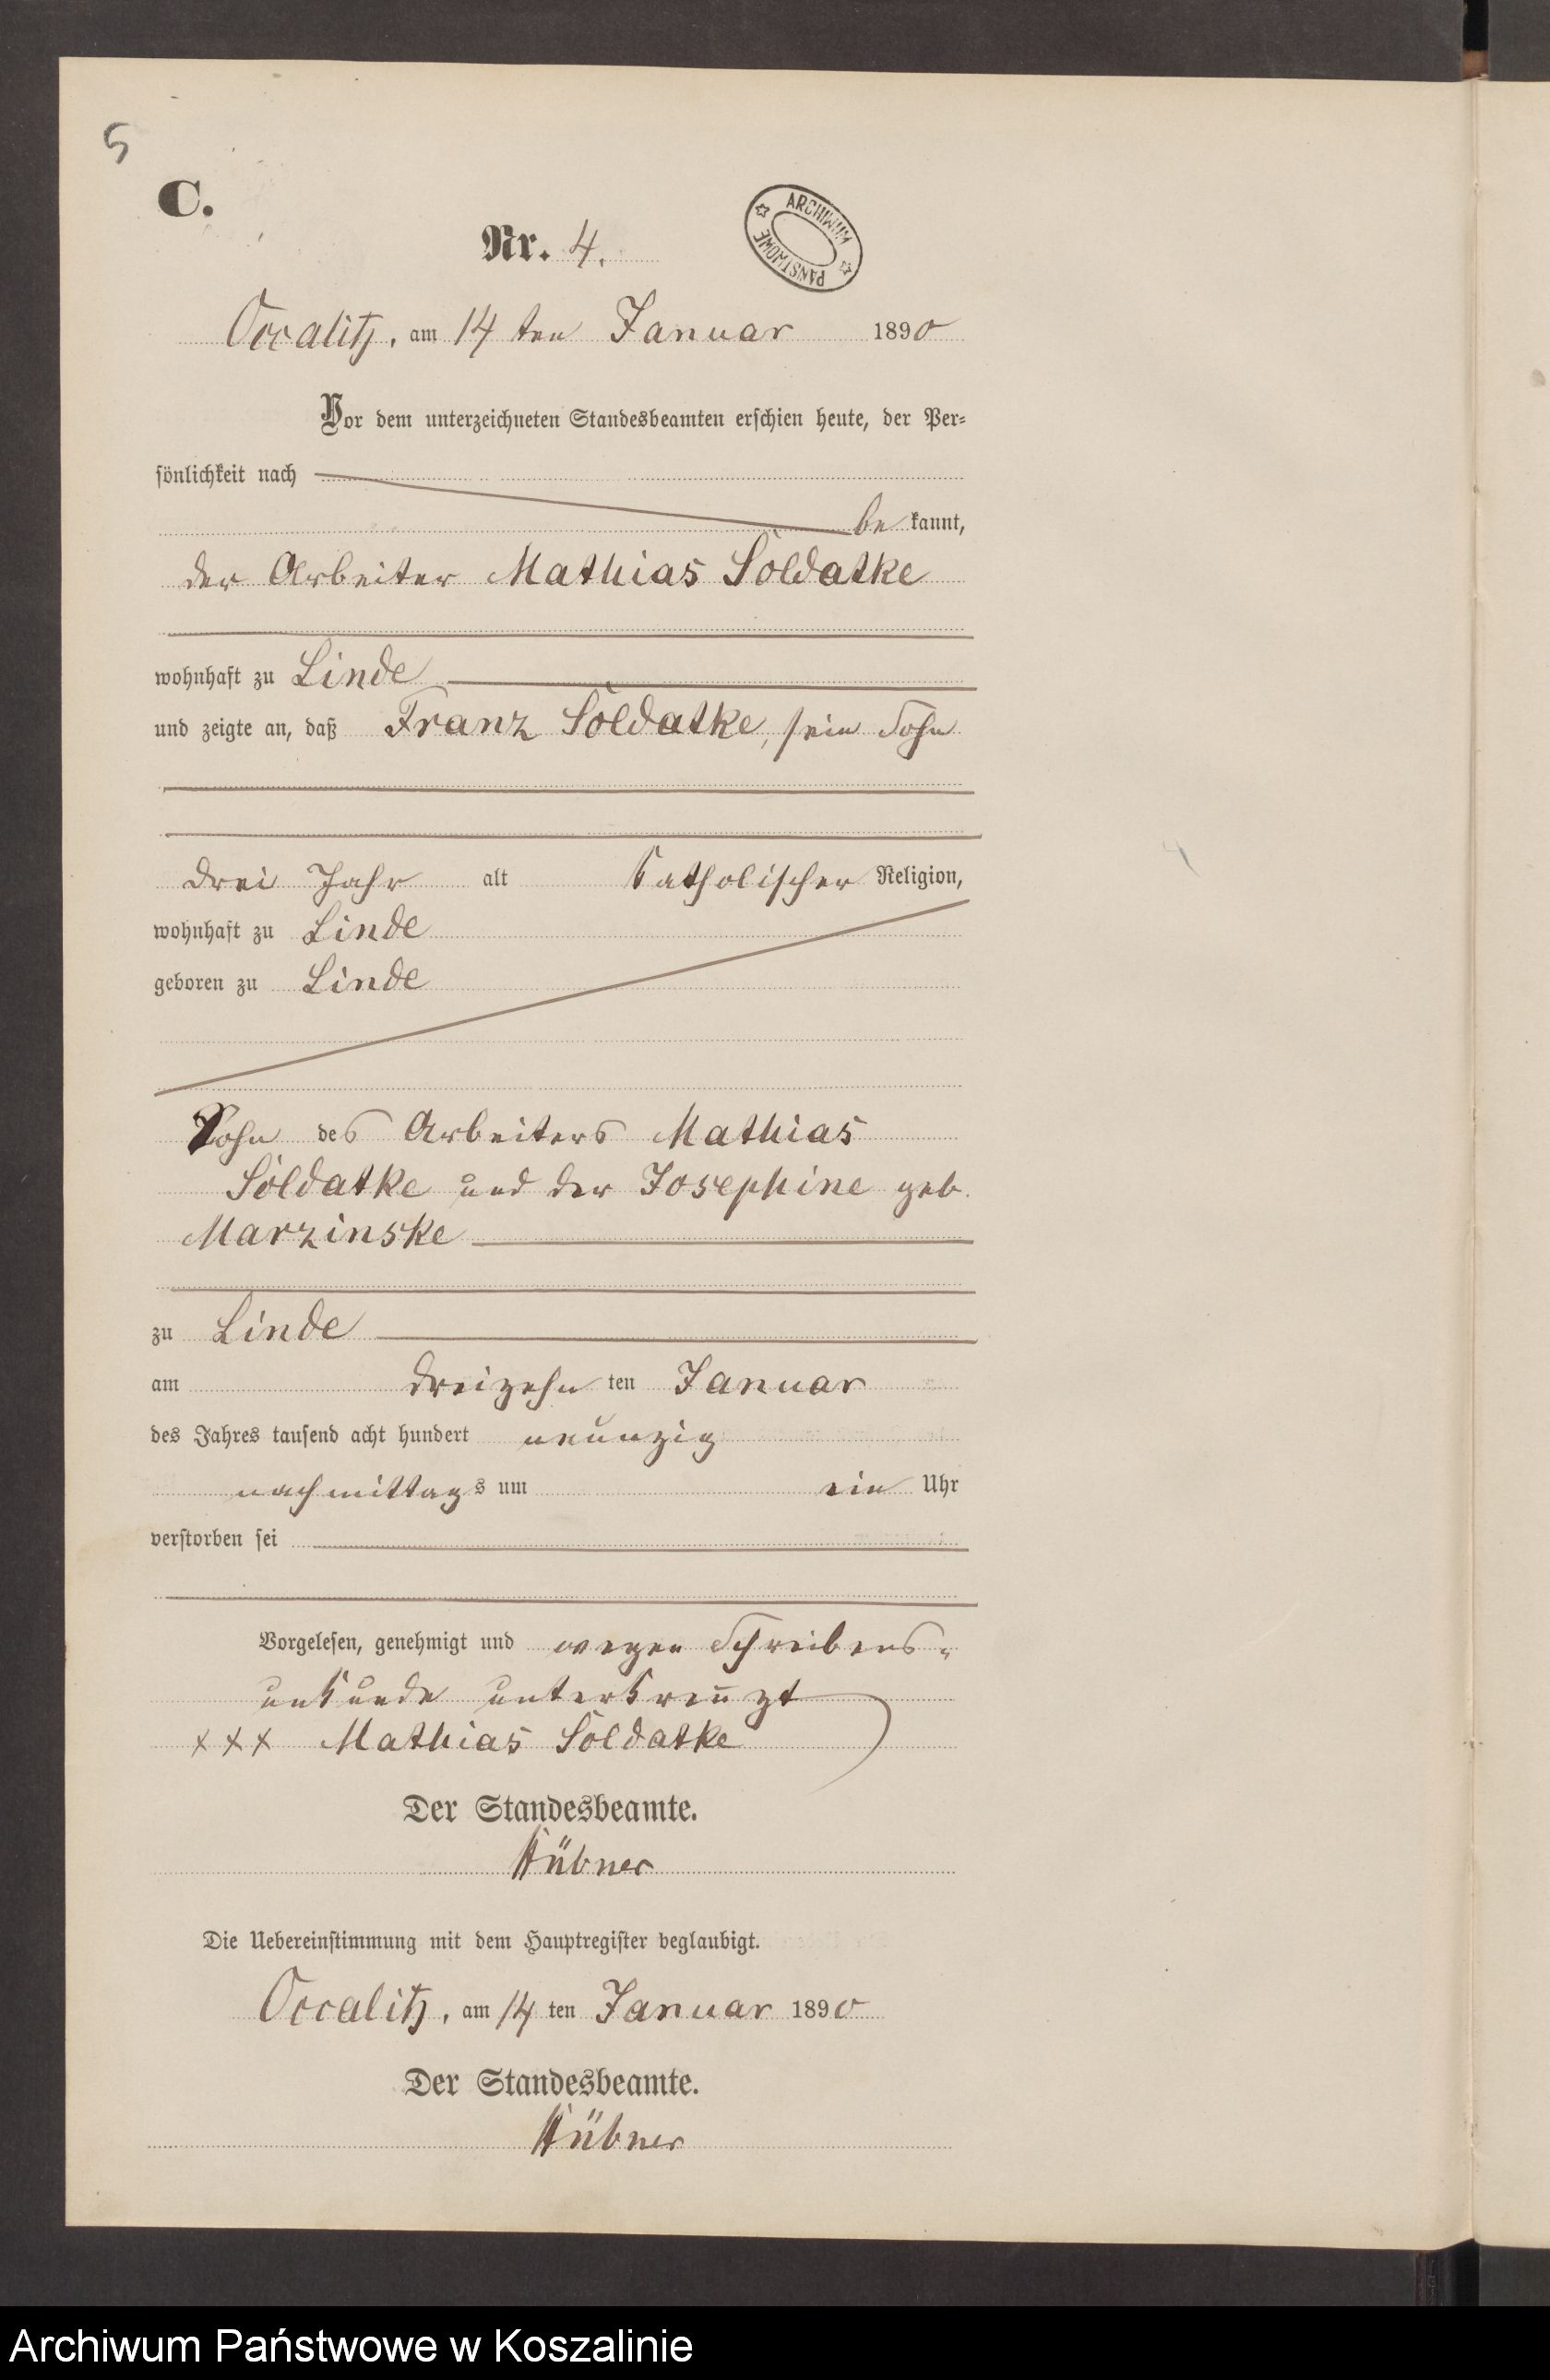 5
C.
ARCHIWUM PAŃSTWOWE
Nr. 4.
Occalitz, am 14 ten Januar 1890
Vor dem unterzeichneten Standesbeamten erschien heute, der Per-
sönlichkeit nach
be kannt,
der Arbeiter Mathias Soldatke
wohnhaft zu Linde
und zeigte an, daß Franz Soldatke, sein Sohn
drei Jahr alt katholischer Religion,
wohnhaft zu Linde
geboren zu Linde
Sohn des Arbeiters Mathias
Soldatke und der Josephine geb.
Marzinske
zu Linde
am dreizehn ten Januar
des Jahres tausend acht hundert neunzig
nachmittags um ein Uhr
verstorben sei
Vorgelesen, genehmigt und wegen Schreibens-
unkunde unterkreuzt
xxx Mathias Soldatke
Der Standesbeamte.
Hübner
Die Uebereinstimmung mit dem Hauptregister beglaubigt.
Occalitz, am 14 ten Januar 1890
Der Standesbeamte.
Hübner
Archiwum Państwowe w Koszalinie